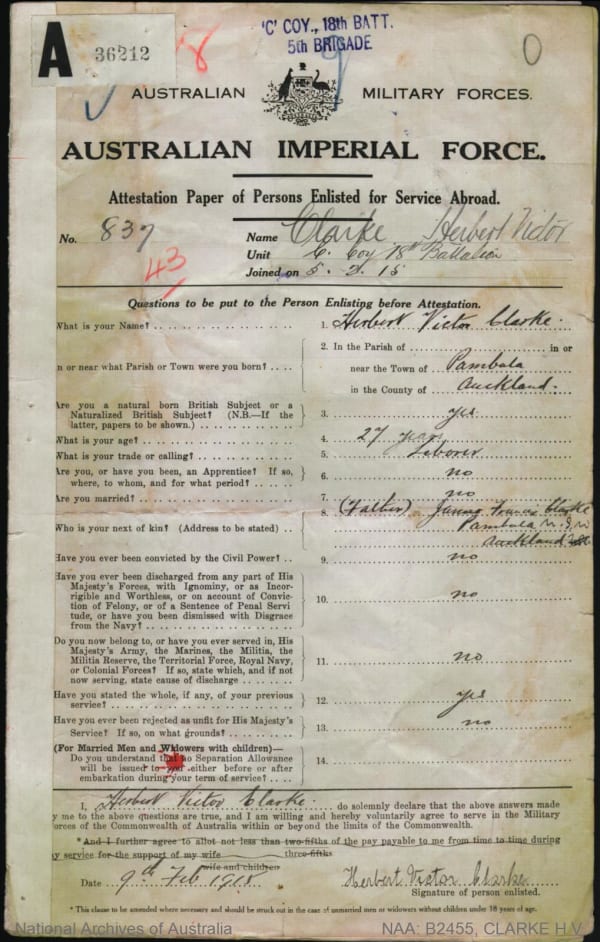 'C' COY., 18th BATT.
5th BRIGADE
A 36212
8
0
AUSTRALIAN MILITARY FORCES.
AUSTRALIAN IMPERIAL FORCE.
Attestation Paper of Persons Enlisted for Service Abroad.
No. 837 Name Clarke Herbert Victor
Unit C. Coy 18th Battalion
43 Joined on 5. 2. 15
Questions to be put to the Person Enlisting before Attestation.
What is your Name? 1. Herbert Victor Clarke.
2. In the Parish of in or
n or near what Parish or Town were you born? near the Town of Pambula
in the County of Auckland.
Are you a natural born British Subject or a
Naturalized British Subject? (N.B.—If the 3. yes
latter, papers to be shown.)
What is your age? 4. 27 years
What is your trade or calling? 5. Laborer
Are you, or have you been, an Apprentice? If so, 6. no
where, to whom, and for what period?
Are you married? 7. no
8. (Father) James Francis Clarke
Who is your next of kin? (Address to be stated) Pambula N.S.W
Auckland
Have you ever been convicted by the Civil Power? 9. no
Have you ever been discharged from any part of His
Majesty's Forces, with Ignominy, or as Incor-
rigible and Worthless, or on account of Convic- 10. no
tion of Felony, or of a Sentence of Penal Servi
tude, or have you been Dismissed with Disgrace
from the Navy?
Do you now belong to, or have you ever served in, His
Majesty's Army, the Marines, the Militia, the
Militia Reserve, the Territorial Force, Royal Navy, 11. no
or Colonial Forces? If so, state which, and if not
now serving, state cause of discharge
Have you stated the whole, if any, of your previous 12. yes
service?
Have you ever been rejected as unfit for His Majesty's 13. no
Service? If so, on what grounds?
(For Married Men and Widowers with children)—
Do you understand that no Separation Allowance 14.
will be issued to you either before or after
embarkation during your term of service?
I, Herbert Victor Clarke. do solemnly declare that the above answers made
y me to the above questions are true, and I am willing and hereby voluntarily agree to serve in the Military
orces of the Commonwealth of Australia within or beyond the limits of the Commonwealth.
*And I further agree to allot not less than two-fifths of the pay payable to me from time to time during
y service for the support of my wife three-fifths
wife and children
Date 9th Feb 1915 Herbert Victor Clarke
Signature of person enlisted.
* This clause to be amended where necessary and should be struck out in the case of unmarried men or widowers without children under 18 years of age.
National Archives of Australia NAA: B2455, CLARKE H.V